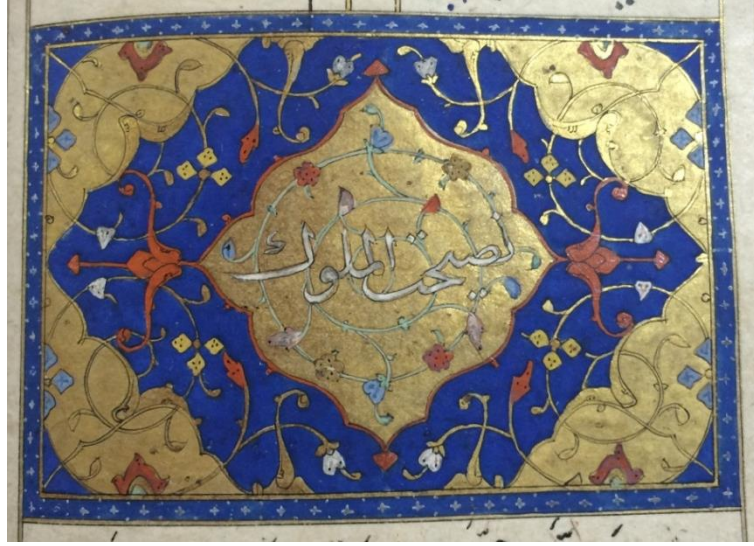 نصیحت الملوک